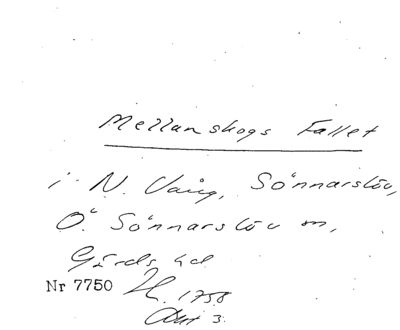 Mellanskogs Fallet
i N. Vång, Sönnarslöv,
Ö. Sönnarslöv sn,
Gärds hd
Nr 7750
1758
Akt 3.